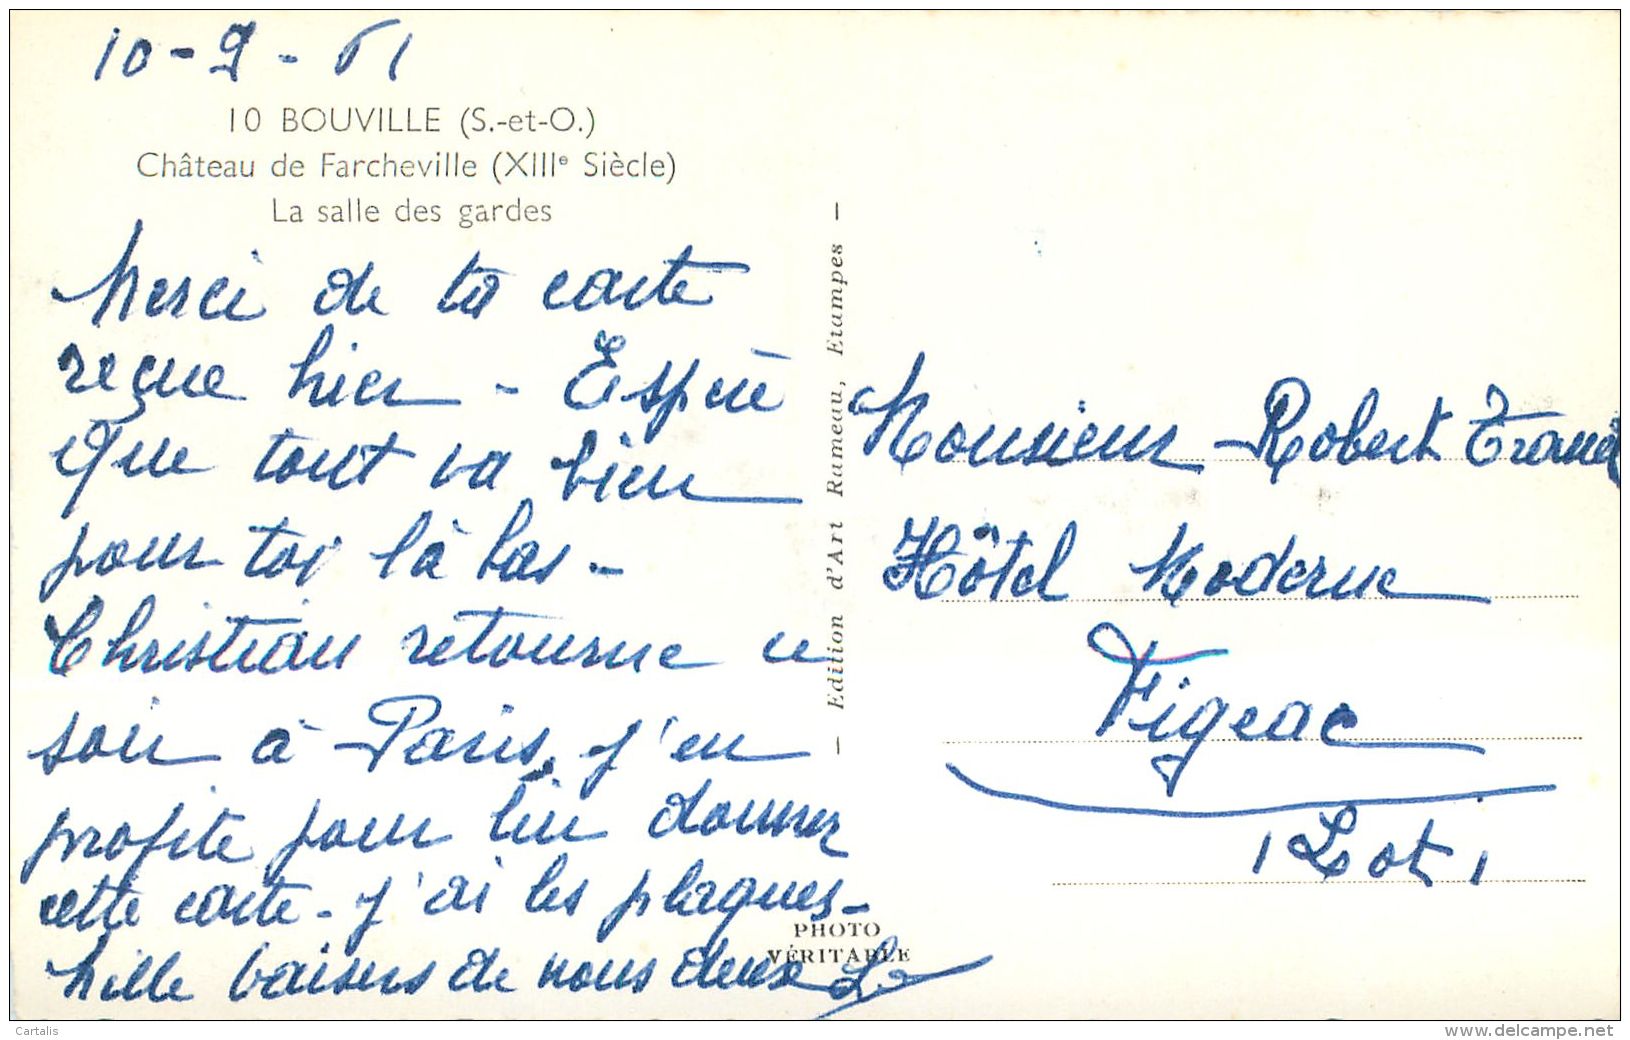 10-9-61
10 BOUVILLE (S.-et-O.)
Château de Farcheville (XIIIe Siècle)
La salle des gardes
Merci de ta carte
reçue hier - Espère
que tout va bien
pour toi là bas -
Christian retourne ce
soir à Paris, j'en
profite pour lui donner
cette carte - J'ai les plaques -
Mille baisers de nous deux
Edition d'Art Rameau, Etampes
Monsieur Robert
Hôtel Moderne
Figeac
(Lot)
PHOTO
VÉRITABLE
Cartalis
www.delcampe.net